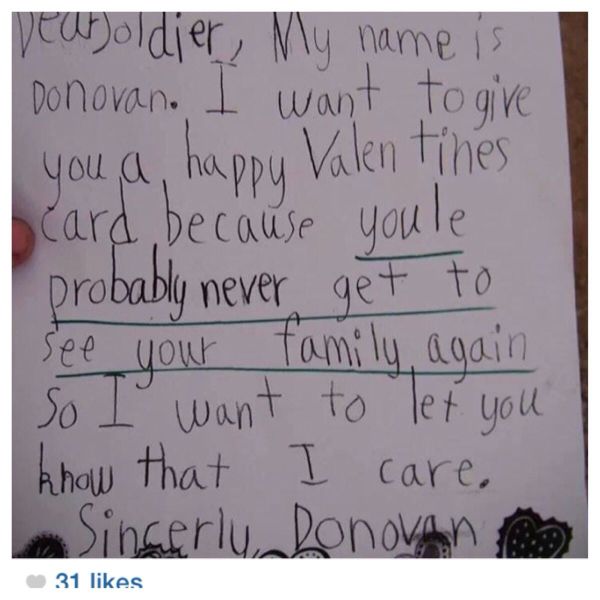 Dear Soldier, My name is
Donovan. I want to give
you a happy Valentines
card because youle
probably never get to
see your family again
So I want to let you
know that I care.
Sincerly, Donovan
31 likes